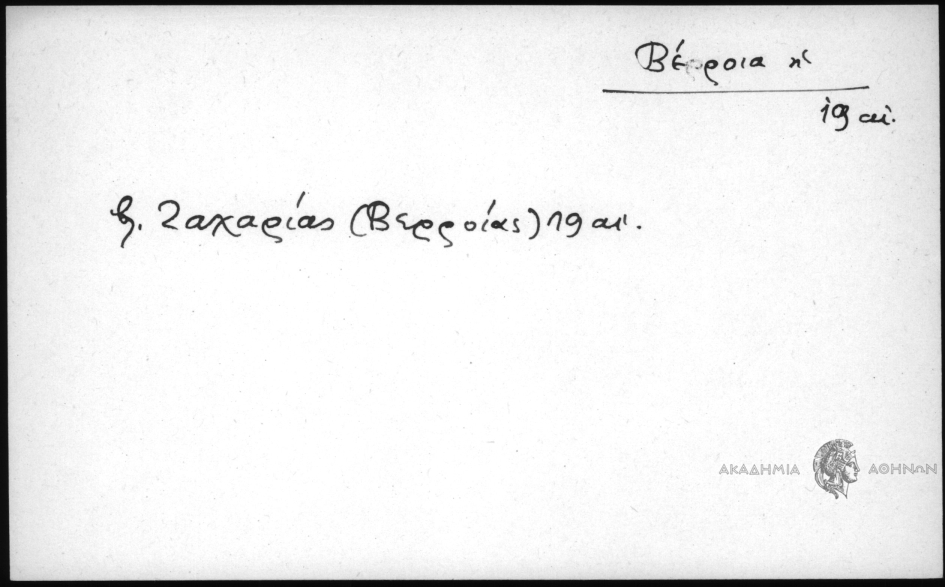 Βέρροια κ'
19 αἰ.
β. Ζαχαρίας (Βερροίας) 19 αἰ.
ΑΚΑΔΗΜΙΑ ΑΘΗΝΩΝ